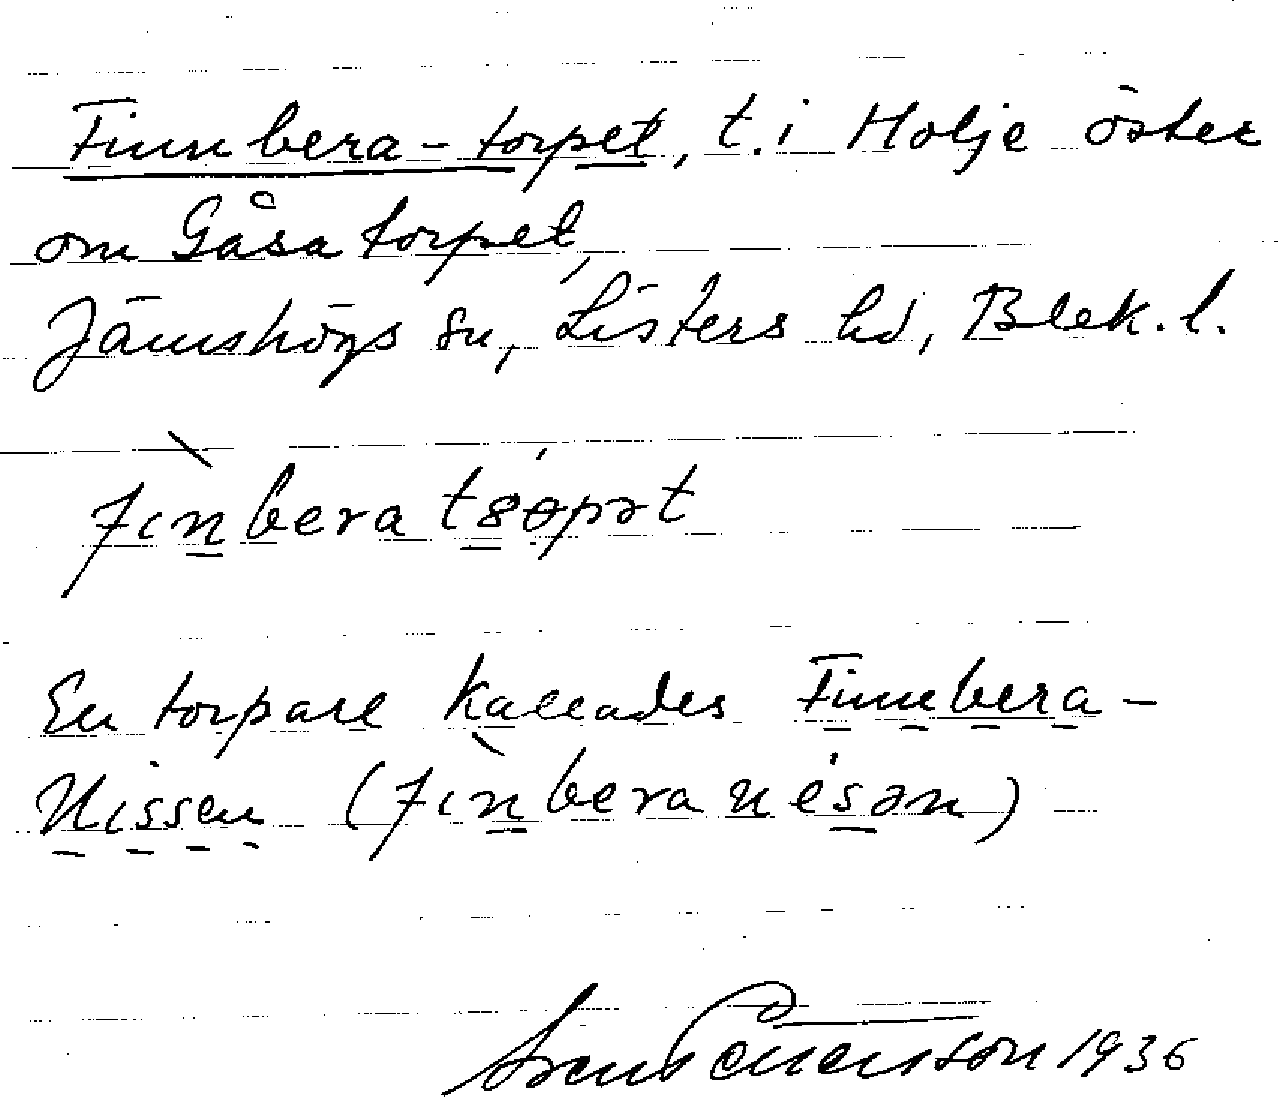 Finnbera-torpet, t. i Holje öster
om Gåsatorpet,
Jämshögs sn, Listers hd, Blek. l.
En torpare kallades Finnbera-
Nissen
Sven 1936